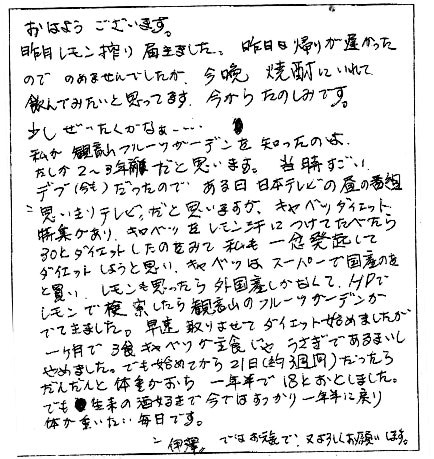 おはよう ございます。
昨日レモン搾り 届きました。昨日は帰りが遅かった
ので のめませんでしたが、今晩 焼酎にいれて
飲んでみたいと思ってます。今から たのしみです。
少し ぜいたくかなぁ……
私が 観音山フルーツガーデンを 知ったのは、
たしか2〜3年 だと思います。当時すごい
デブ(今も)だったので ある日 日本テレビの昼の番組
思いきりテレビ。だと思いますが、キャベツダイエット
特集があり、キャベツをレモン汁につけてたべたら
30kダイエットしたのをみて 私も 一念発起して
ダイエットしようと思い、キャベツは スーパーで 国産のを
と買い、レモンも思ったら 外国産しかなくて、HPで
レモンで 検索したら観音山のフルーツガーデンが
でて来ました。早速 取りよせて ダイエット始めましたが
一ヶ月で 3食 キャベツが主食じゃ うさぎであるまいし
やめました。でも始めてから21日(約3週間)だったら
だんだんと 体重がおち 一年半で18kおとしました。
でも 生来の酒好きで 今ではすっかり一年半に戻り
体が重いたい毎日です。
伊澤。 ではお後で、又よろしくお願いします。